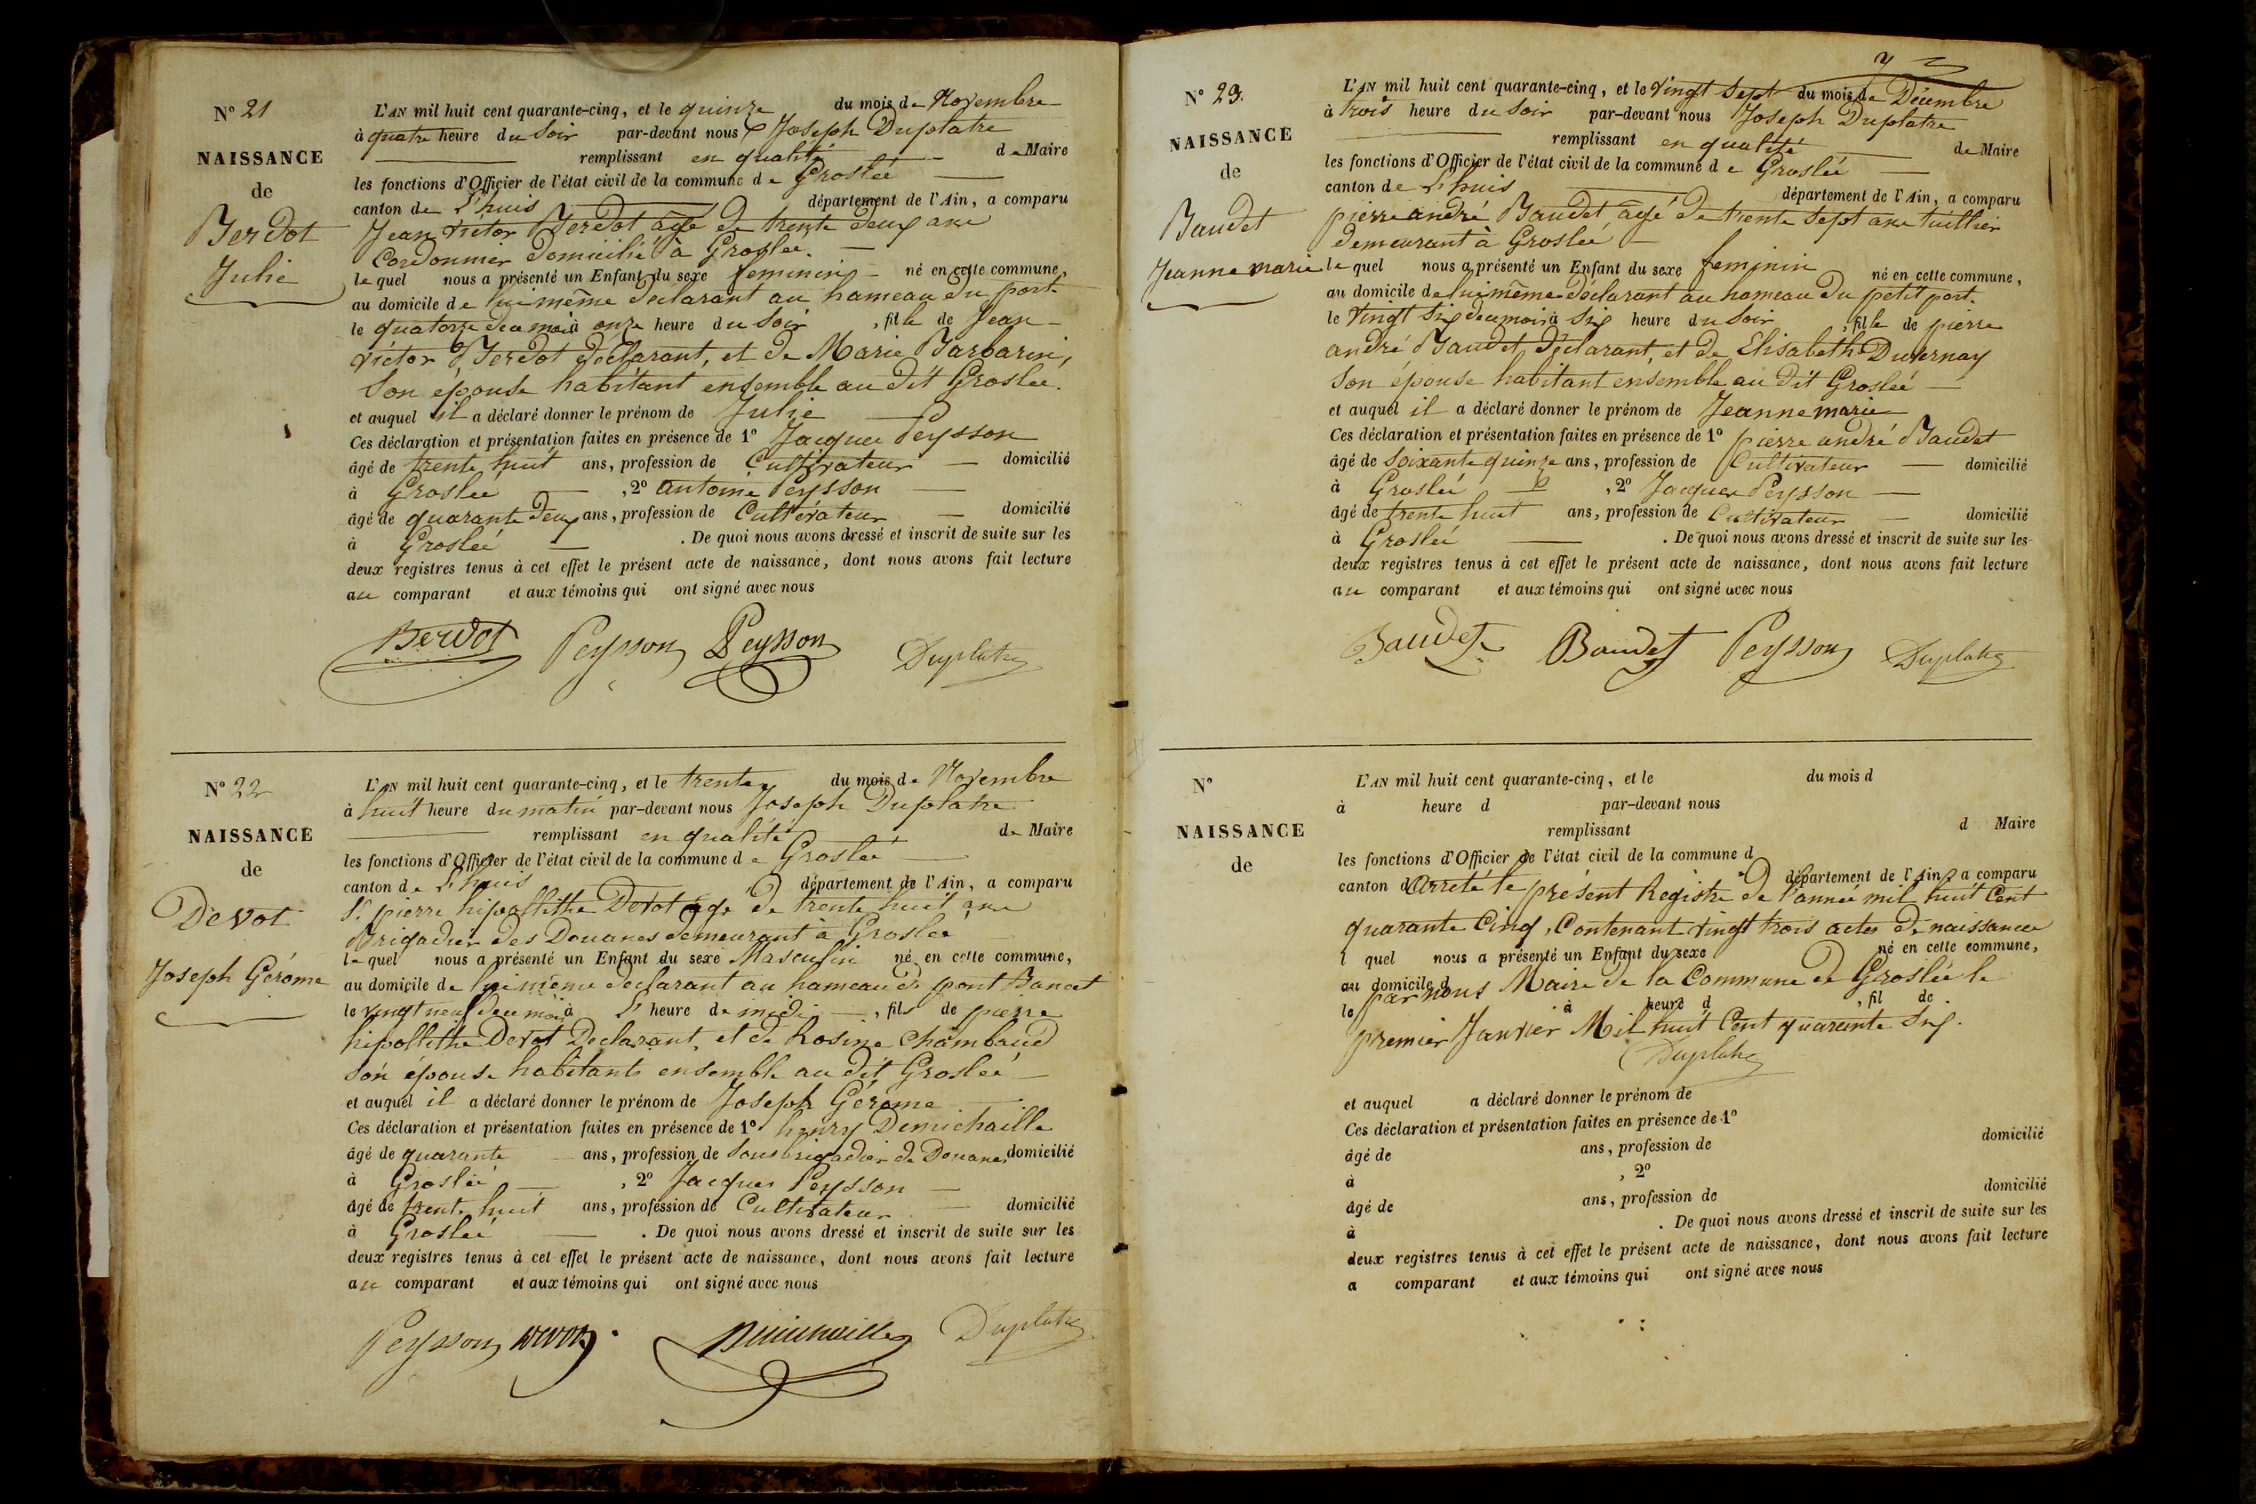 N° 21
NAISSANCE
de
Berdot
Julie
L'AN mil huit cent quarante-cinq, et le quinze du mois de Novembre
à quatre heure du Soir par-devant nous Joseph Duplatre
remplissant en qualité de Maire
les fonctions d'Officier de l'état civil de la commune de Groslée
canton de L'huis département de l'Ain, a comparu
Jean Victor Berdot âgé de trente deux ans
Cordonnier domicilié à Groslee.
lequel nous a présenté un Enfant du sexe feminin né en cette commune,
au domicile de lui même déclarant au hameau du port
le quatorze du mois à onze heure du Soir, fille de Jean
Victor Berdot déclarant, et de Marie Barbarin,
Son épouse habitant ensemble au dit Groslee.
et auquel il a déclaré donner le prénom de Julie
Ces déclaration et présentation faites en présence de 1° Jacques Peysson
âgé de trente huit ans, profession de Cultivateur domicilié
à Groslée, 2° antoine Peysson
âgé de quarante deux ans, profession de Cultivateur domicilié
à Groslée. De quoi nous avons dressé et inscrit de suite sur les
deux registres tenus à cet effet le présent acte de naissance, dont nous avons fait lecture
au comparant et aux témoins qui ont signé avec nous
Berdot Peysson Peysson Duplatre
N° 22
NAISSANCE
de
Devot
Joseph Gérôme
L'AN mil huit cent quarante-cinq, et le trente du mois de Novembre
à huit heure du matin par-devant nous Joseph Duplatre
remplissant en qualité de Maire
les fonctions d'Officier de l'état civil de la commune de Groslée
canton de L'huis département de l'Ain, a comparu
Sr. pierre hipollithe Devot âgé de trente huit ans
Brigadier des Douanes demeurant à Groslee
lequel nous a présenté un Enfant du sexe Masculin né en cette commune,
au domicile de lui même déclarant au hameau de pont Bancet
le vingt neuf du mois à heure de midi, fils de pierre
hipollithe Devot Declarant, et de Rosine Chambrud
Son épouse habitants ensemble au dit Groslée
et auquel il a déclaré donner le prénom de Joseph Gérôme
Ces déclaration et présentation faites en présence de 1° henry Demichaille
âgé de quarante ans, profession de Sous brigadier de Douanes domicilié
à Groslée, 2° Jacques Peysson
âgé de trente huit ans, profession de Cultivateur domicilié
à Groslée. De quoi nous avons dressé et inscrit de suite sur les
deux registres tenus à cet effet le présent acte de naissance, dont nous avons fait lecture
au comparant et aux témoins qui ont signé avec nous
Peysson Devot Demichaille Duplatre
N° 23.
NAISSANCE
de
Baudet
Jeanne marie
L'AN mil huit cent quarante-cinq, et le Vingt Sept du mois de Décembre
à trois heure du Soir par-devant nous Joseph Duplatre
remplissant en qualité de Maire
les fonctions d'Officier de l'état civil de la commune de Groslée
canton de L'huis département de l'Ain, a comparu
pierre andré Baudet âgé de trente Sept ans tuillier
demeurant à Groslée
lequel nous a présenté un Enfant du sexe feminin né en cette commune,
au domicile de lui même déclarant au hameau du petit port.
le Vingt Six du mois à Six heure du Soir, fille de pierre
andré Baudet déclarant, et de Elisabeth Duvernay
Son épouse habitant ensemble au dit Groslée
et auquel il a déclaré donner le prénom de Jeanne marie
Ces déclaration et présentation faites en présence de 1° pierre andré Baudet
âgé de Soixante quinze ans, profession de Cultivateur domicilié
à Groslée, 2° Jacques Peysson
âgé de trente huit ans, profession de Cultivateur domicilié
à Groslée. De quoi nous avons dressé et inscrit de suite sur les
deux registres tenus à cet effet le présent acte de naissance, dont nous avons fait lecture
au comparant et aux témoins qui ont signé avec nous
Baudet Baudet Peysson Duplatre
N°
NAISSANCE
de
L'AN mil huit cent quarante-cinq, et le du mois d
à heure d par-devant nous
remplissant d Maire
les fonctions d'Officier de l'état civil de la commune d
canton d département de l'Ain, a comparu
Arrêté le présent Registre de l'année mil huit Cent
quarante Cinq, Contenant vingt trois actes de naissances
l quel nous a présenté un Enfant du sexe né en cette commune,
au domicile d
par nous Maire de la Commune de Groslée le
le à heure d, fil de
premier Janvier Mil huit Cent quarante Six.
Duplatre
et auquel a déclaré donner le prénom de
Ces déclaration et présentation faites en présence de 1°
âgé de ans, profession de domicilié
à, 2°
âgé de ans, profession de domicilié
à. De quoi nous avons dressé et inscrit de suite sur les
deux registres tenus à cet effet le présent acte de naissance, dont nous avons fait lecture
a comparant et aux témoins qui ont signé avec nous